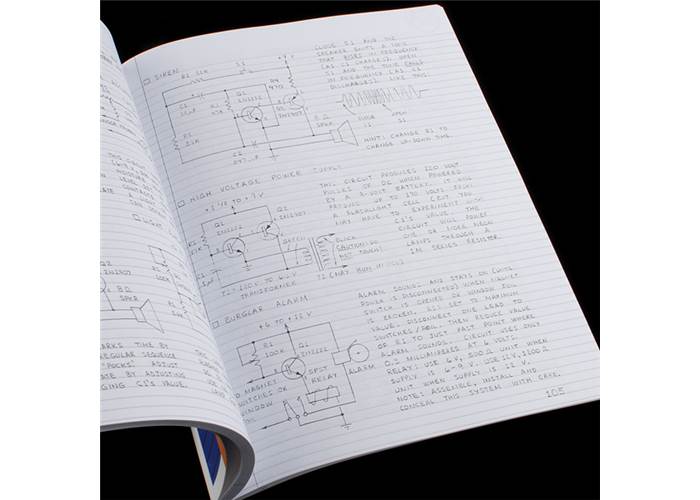 THIS CIRCUIT
LIGHT
2N2907
8Ω
SPKR
ARKS TIME BY
REGULAR SEQUENCE
"POCKS". ADJUST
ATE BY ADJUSTING
GING C1'S VALUE.
□ SIREN
CLOSE S1 AND THE
SPEAKER EMITS A TONE
THAT RISES IN FREQUENCY
(AS C1 CHARGES). OPEN
S1 AND THE TONE FALLS
IN FREQUENCY (AS C1
DISCHARGES). LIKE THIS:
+9V
S1
R4
470
C1
Q1
2N2222
Q2
2N2907
8Ω
SPKR
C2
CLOSE S1
OPEN S1
HINT: CHANGE R1 TO
CHANGE UP-DOWN TIME.
□ HIGH VOLTAGE POWER SUPPLY
THIS CIRCUIT PRODUCES 120 VOLT
PULSES OF DC WHEN POWERED
BY A 9-VOLT BATTERY. IT WILL
PRODUCE UP TO 190 VOLTS FROM
A FLASHLIGHT CELL (BUT YOU
MAY HAVE TO EXPERIMENT WITH
C1'S VALUE. THE
CIRCUIT WILL POWER
ONE OR MORE NEON
LAMPS THROUGH A
1M SERIES RESISTOR.
+1 1/2 TO +9V
Q1
2N2222
Q2
2N2907
GREEN
BLACK
CAUTION: DO
NOT TOUCH!
T1 (MAY HUM IN USE)
T1 = 120V TO 6.3V
TRANSFORMER
□ BURGLAR ALARM
ALARM SOUNDS AND STAYS ON (UNTIL
POWER IS DISCONNECTED) WHEN MAGNET
SWITCH IS OPENED OR WINDOW FOIL
IS BROKEN. R1: SET TO MAXIMUM
VALUE. DISCONNECT ONE LEAD TO
SWITCHES/FOIL. THEN REDUCE VALUE
OF R1 TO JUST PAST POINT WHERE
ALARM SOUNDS. CIRCUIT USES ONLY
0.2 MILLIAMPERES AT 6 VOLTS.
RELAY: USE 6V, 500Ω UNIT WHEN
SUPPLY IS 6-9 V. USE 12V, 1200Ω
UNIT WHEN SUPPLY IS 12 V.
NOTE: ASSEMBLE, INSTALL AND
CONCEAL THIS SYSTEM WITH CARE.
+6 TO +12V
R1
100K
Q1
2N2222
SPST
RELAY
ALARM
TO MAGNET
SWITCHES OR
WINDOW
105